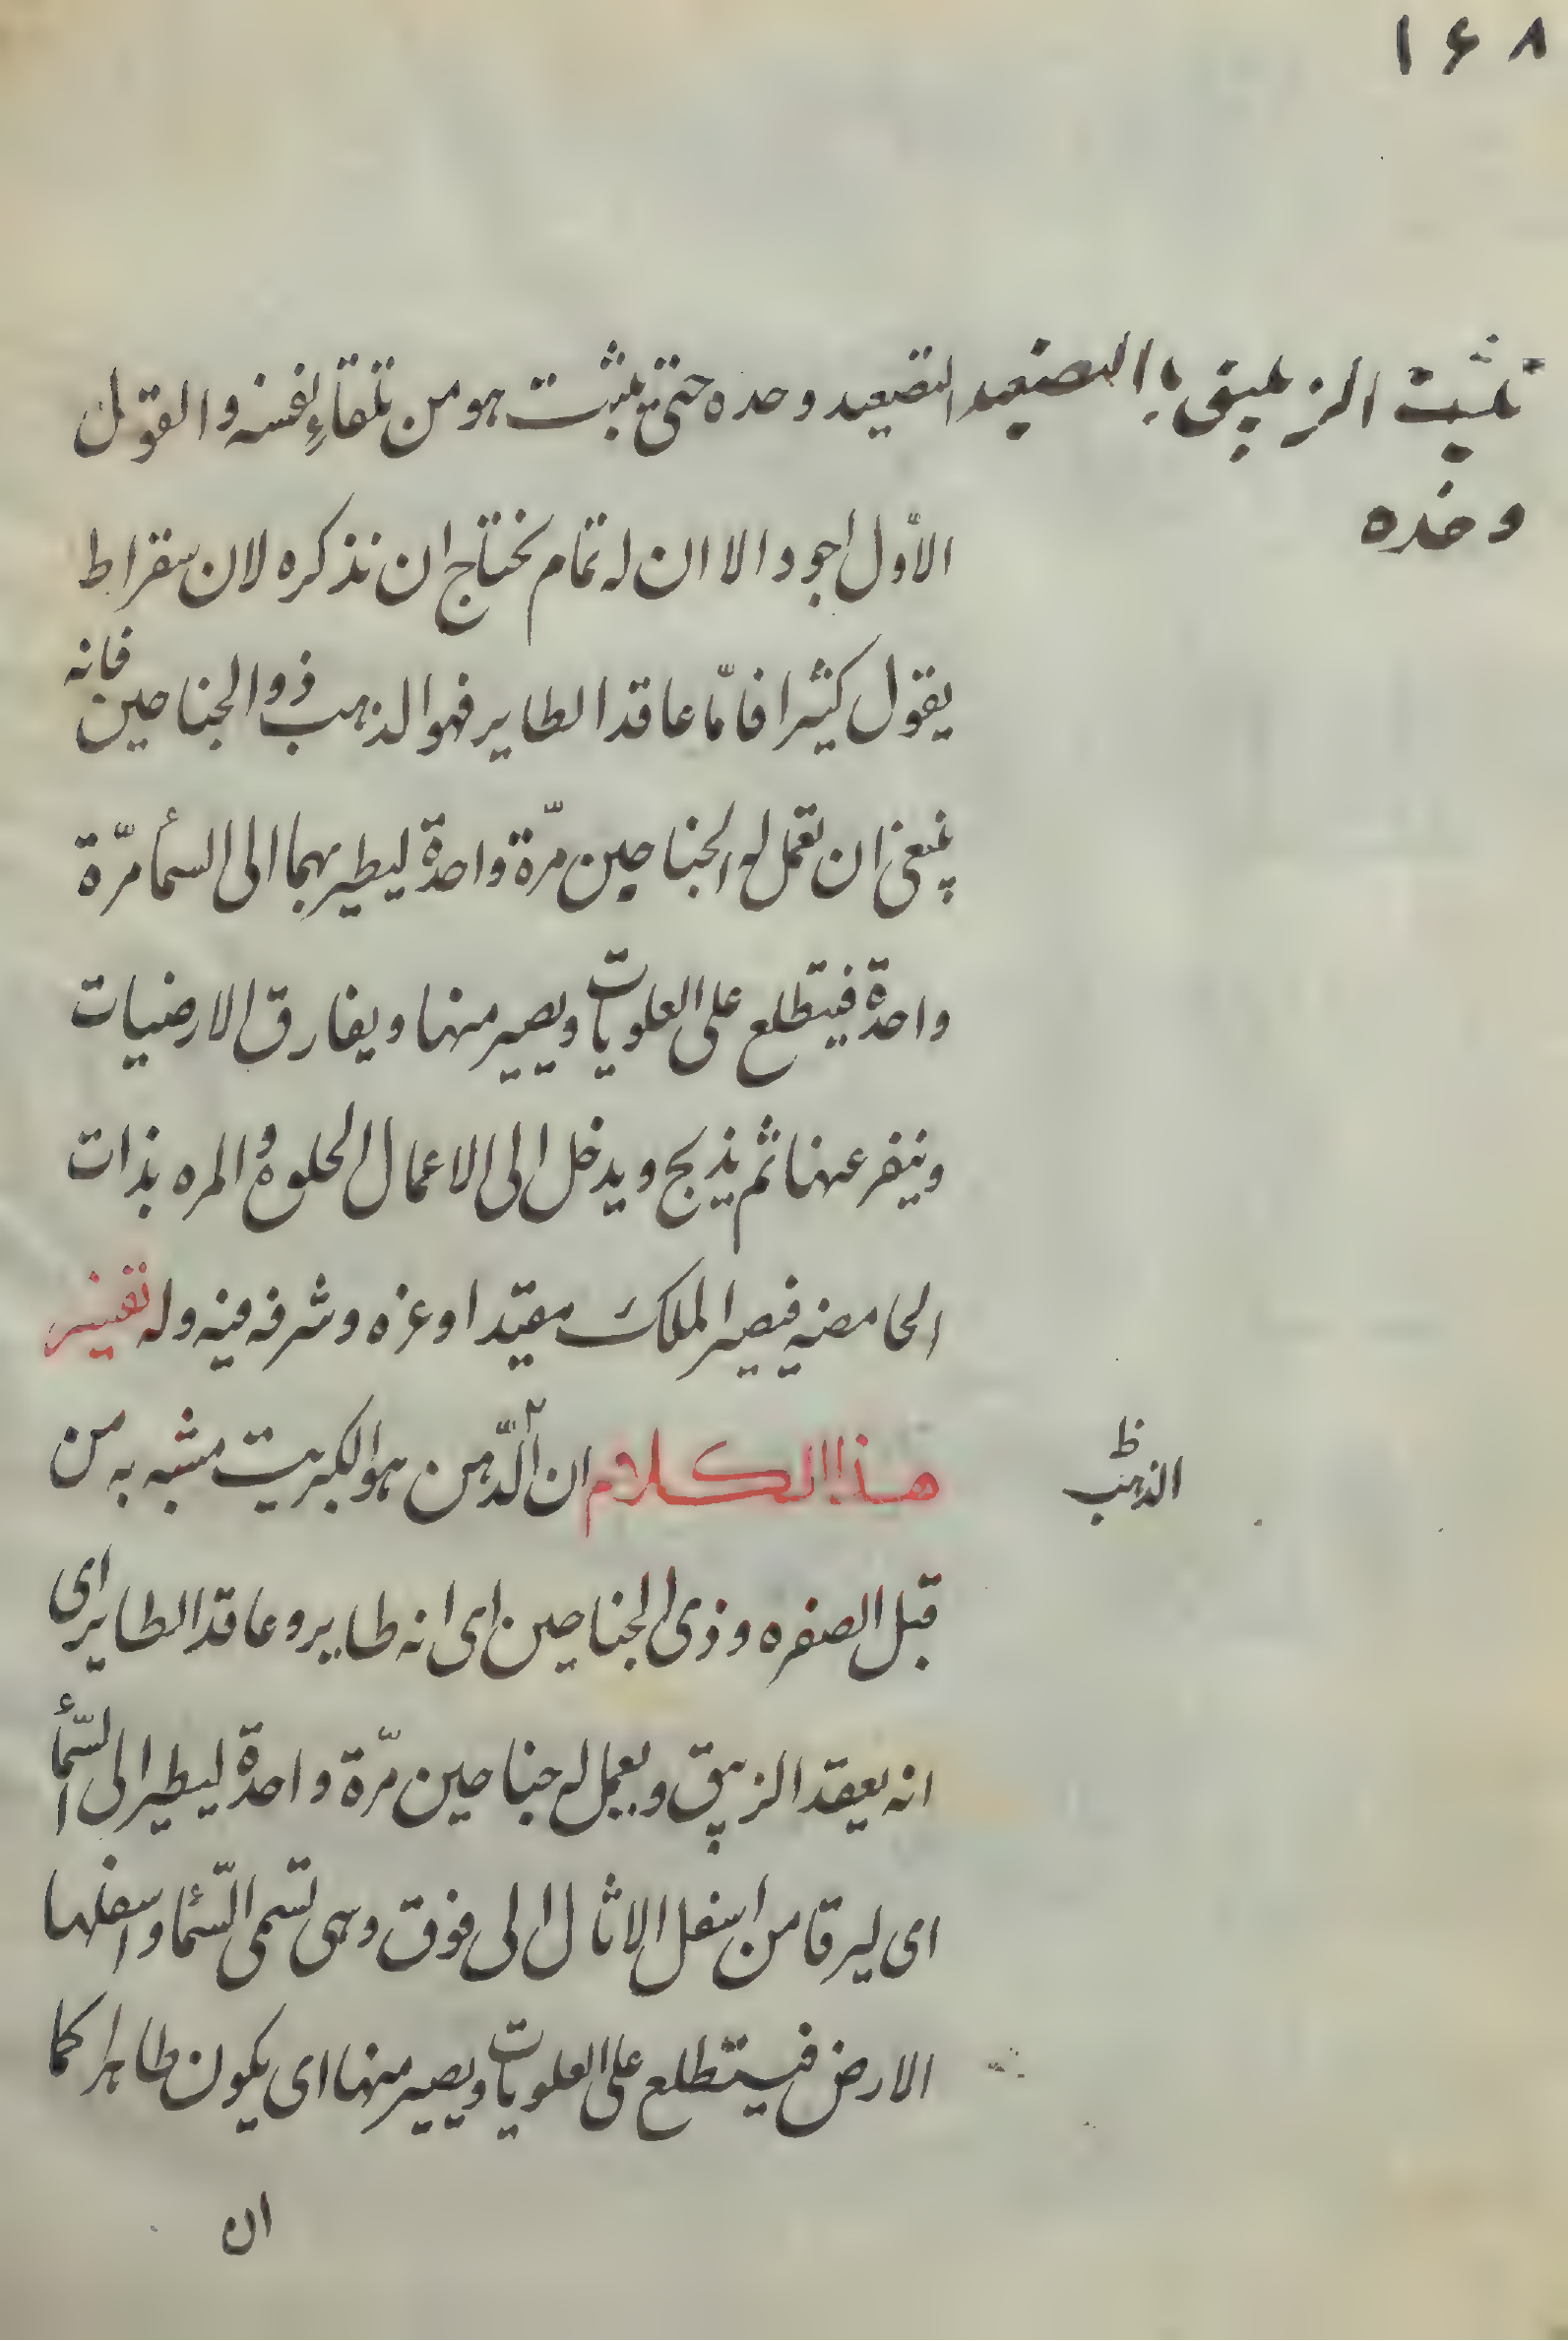 ١۶٨
تثبت الزيبق باالتصعيد
وحده
التصعيد وحده حتى يثبت هو من تلقاءِ نفسه والقول
الأول اجود الا ان له تمام نحتاج ان نذكره لان سقراط
يقول كثيرا فامّا عاقد الطاير فهو الذهب ذو الجناحين فانه
ينبغى ان تعمل له الجناحين مرّة واحدة ليطير بهما الى السمأ مرّة
واحدة فيتطلع على العلويات ويصير منها ويفارق الارضيات
وينفر عنها ثم يذبح ويدخل الى الاعمال الحلوه والمره بذات
الحامضيه فيصير الملك مقيّدا وعزه وشرفه فيه وله تفسير
هذا الكلام ان الدّهن هو الكبريت مشبه به من
الذهب ظ
قبل الصفره وذى الجناحين اى انه طاير وعاقد الطاير اى
انه يعقد الزيبق ويعمل له جناحين مرّة واحدة ليطير الى السّمأ
اى ليرقا من اسفل الاثال الى فوق وهى تسمى السّمأ واسفلها
الارض فيستطلع على العلويات ويصير منها اى يكون طاهرا كما
ان